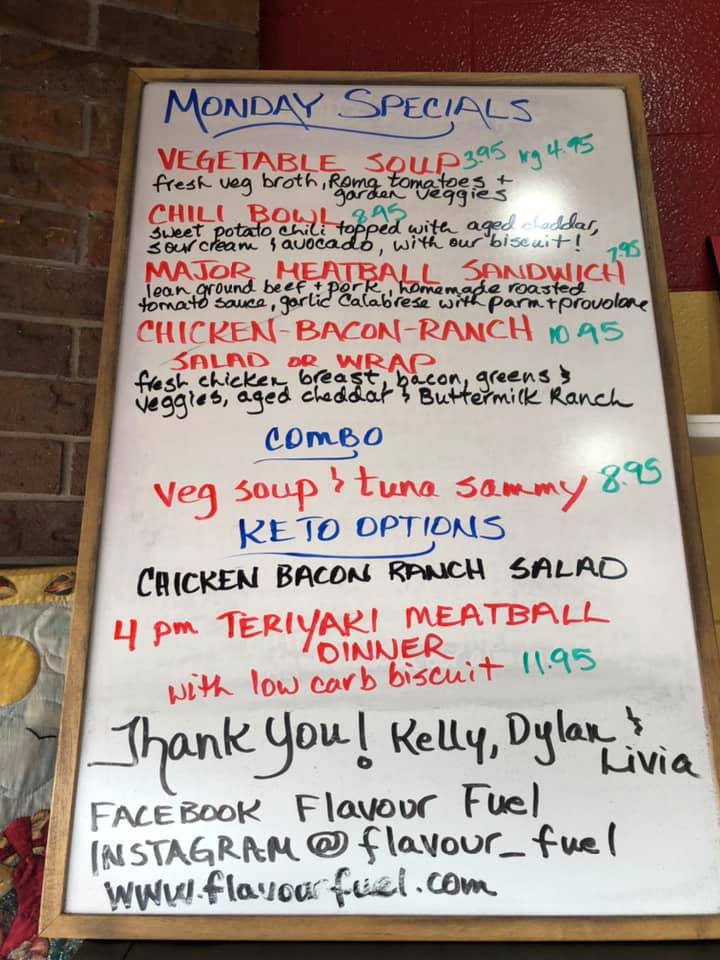 MONDAY SPECIALS
VEGETABLE SOUP 3.95 rg 4.95
fresh veg broth, Roma tomatoes +
garden veggies
CHILI BOWL 8.95
sweet potato chili topped with aged cheddar,
sour cream & avocado, with our biscuit!
7.95
MAJOR MEATBALL SANDWICH
lean ground beef + pork, homemade roasted
tomato sauce, garlic Calabrese with parm + provolone
CHICKEN-BACON-RANCH 10.95
SALAD OR WRAP
fresh chicken breast, bacon, greens &
veggies, aged cheddar & Buttermilk Ranch
COMBO
veg soup & tuna sammy 8.95
KETO OPTIONS
CHICKEN BACON RANCH SALAD
4 pm TERIYAKI MEATBALL
DINNER
with low carb biscuit 11.95
Thank You! Kelly, Dylan &
Livia
FACEBOOK Flavour Fuel
INSTAGRAM @flavour_fuel
www.flavourfuel.com